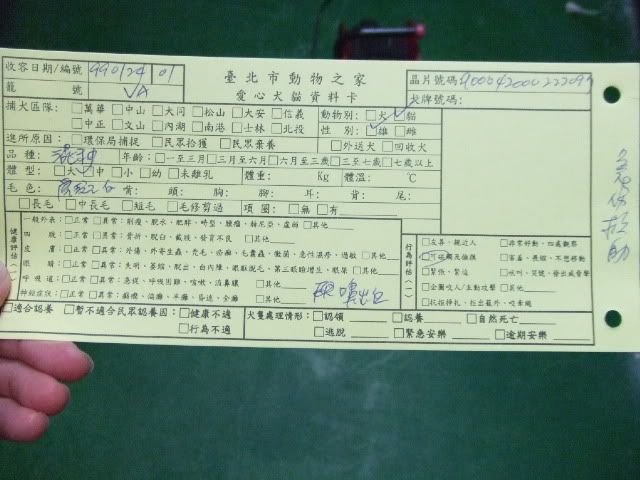 收容日期/編號 990124 01
臺北市動物之家
愛心犬貓資料卡
晶片號碼
籠 號 VA
犬牌號碼:
捕犬區隊: □萬華 □中山 □大同 □松山 □大安 □信義
□中正 □文山 □內湖 □南港 □士林 □北投
動物別: □犬 □貓
性 別: □雄 □雌
進所原因: □環保局捕捉 □民眾拾獲 □民眾棄養 □外送犬 □回收犬
品 種: 混種 年齡: □一至三月 □三月至六月 □六月至三歲 □三至七歲 □七歲以上
體 型: □大 □中 □小 □幼 □未離乳 體重: Kg 體溫: ℃
毛 色: 背: 頭: 胸: 腳: 耳: 背: 尾:
□長毛 □中長毛 □短毛 □毛修剪過 項 圈: □無 □有
健康評估(一)
一般外表: □正常 □異常: 削瘦、脫水、肥胖、畸型、腫瘤、赫尼亞、虛弱 □其他
四 肢: □正常 □異常: 骨折、脫臼、截殘、發育不良 □其他
皮 膚: □正常 □異常: 外傷、外寄生蟲、禿毛、疥癬、毛囊蟲、黴菌、急性濕疹、過敏 □其他
眼 睛: □正常 □異常: 失明、萎縮、脫出、白內障、眼瞼脫毛、第三眼瞼增生、眼屎 □其他
呼 吸 道: □正常 □異常: 急促、呼吸困難、咳嗽、流鼻膿 □其他
神經症狀: □正常 □異常: 癲癇、偏癱、半癱、昏迷、全癱 □其他
行為評估(一)
□友善、親近人 □非常好動、四處觀察
□可碰觸及撫摸 □害羞、畏縮、不想移動
□緊張、緊迫 □吠叫、哭號、發出威脅聲
□企圖咬人/主動攻擊 □其他
□抗拒掙扎、拒出籠外、咬牽繩
□適合認養 □暫不適合民眾認養因: □健康不適
□行為不適
犬隻處理情形: □認領 □認養 □自然死亡
□逃脫 □緊急安樂 □逾期安樂